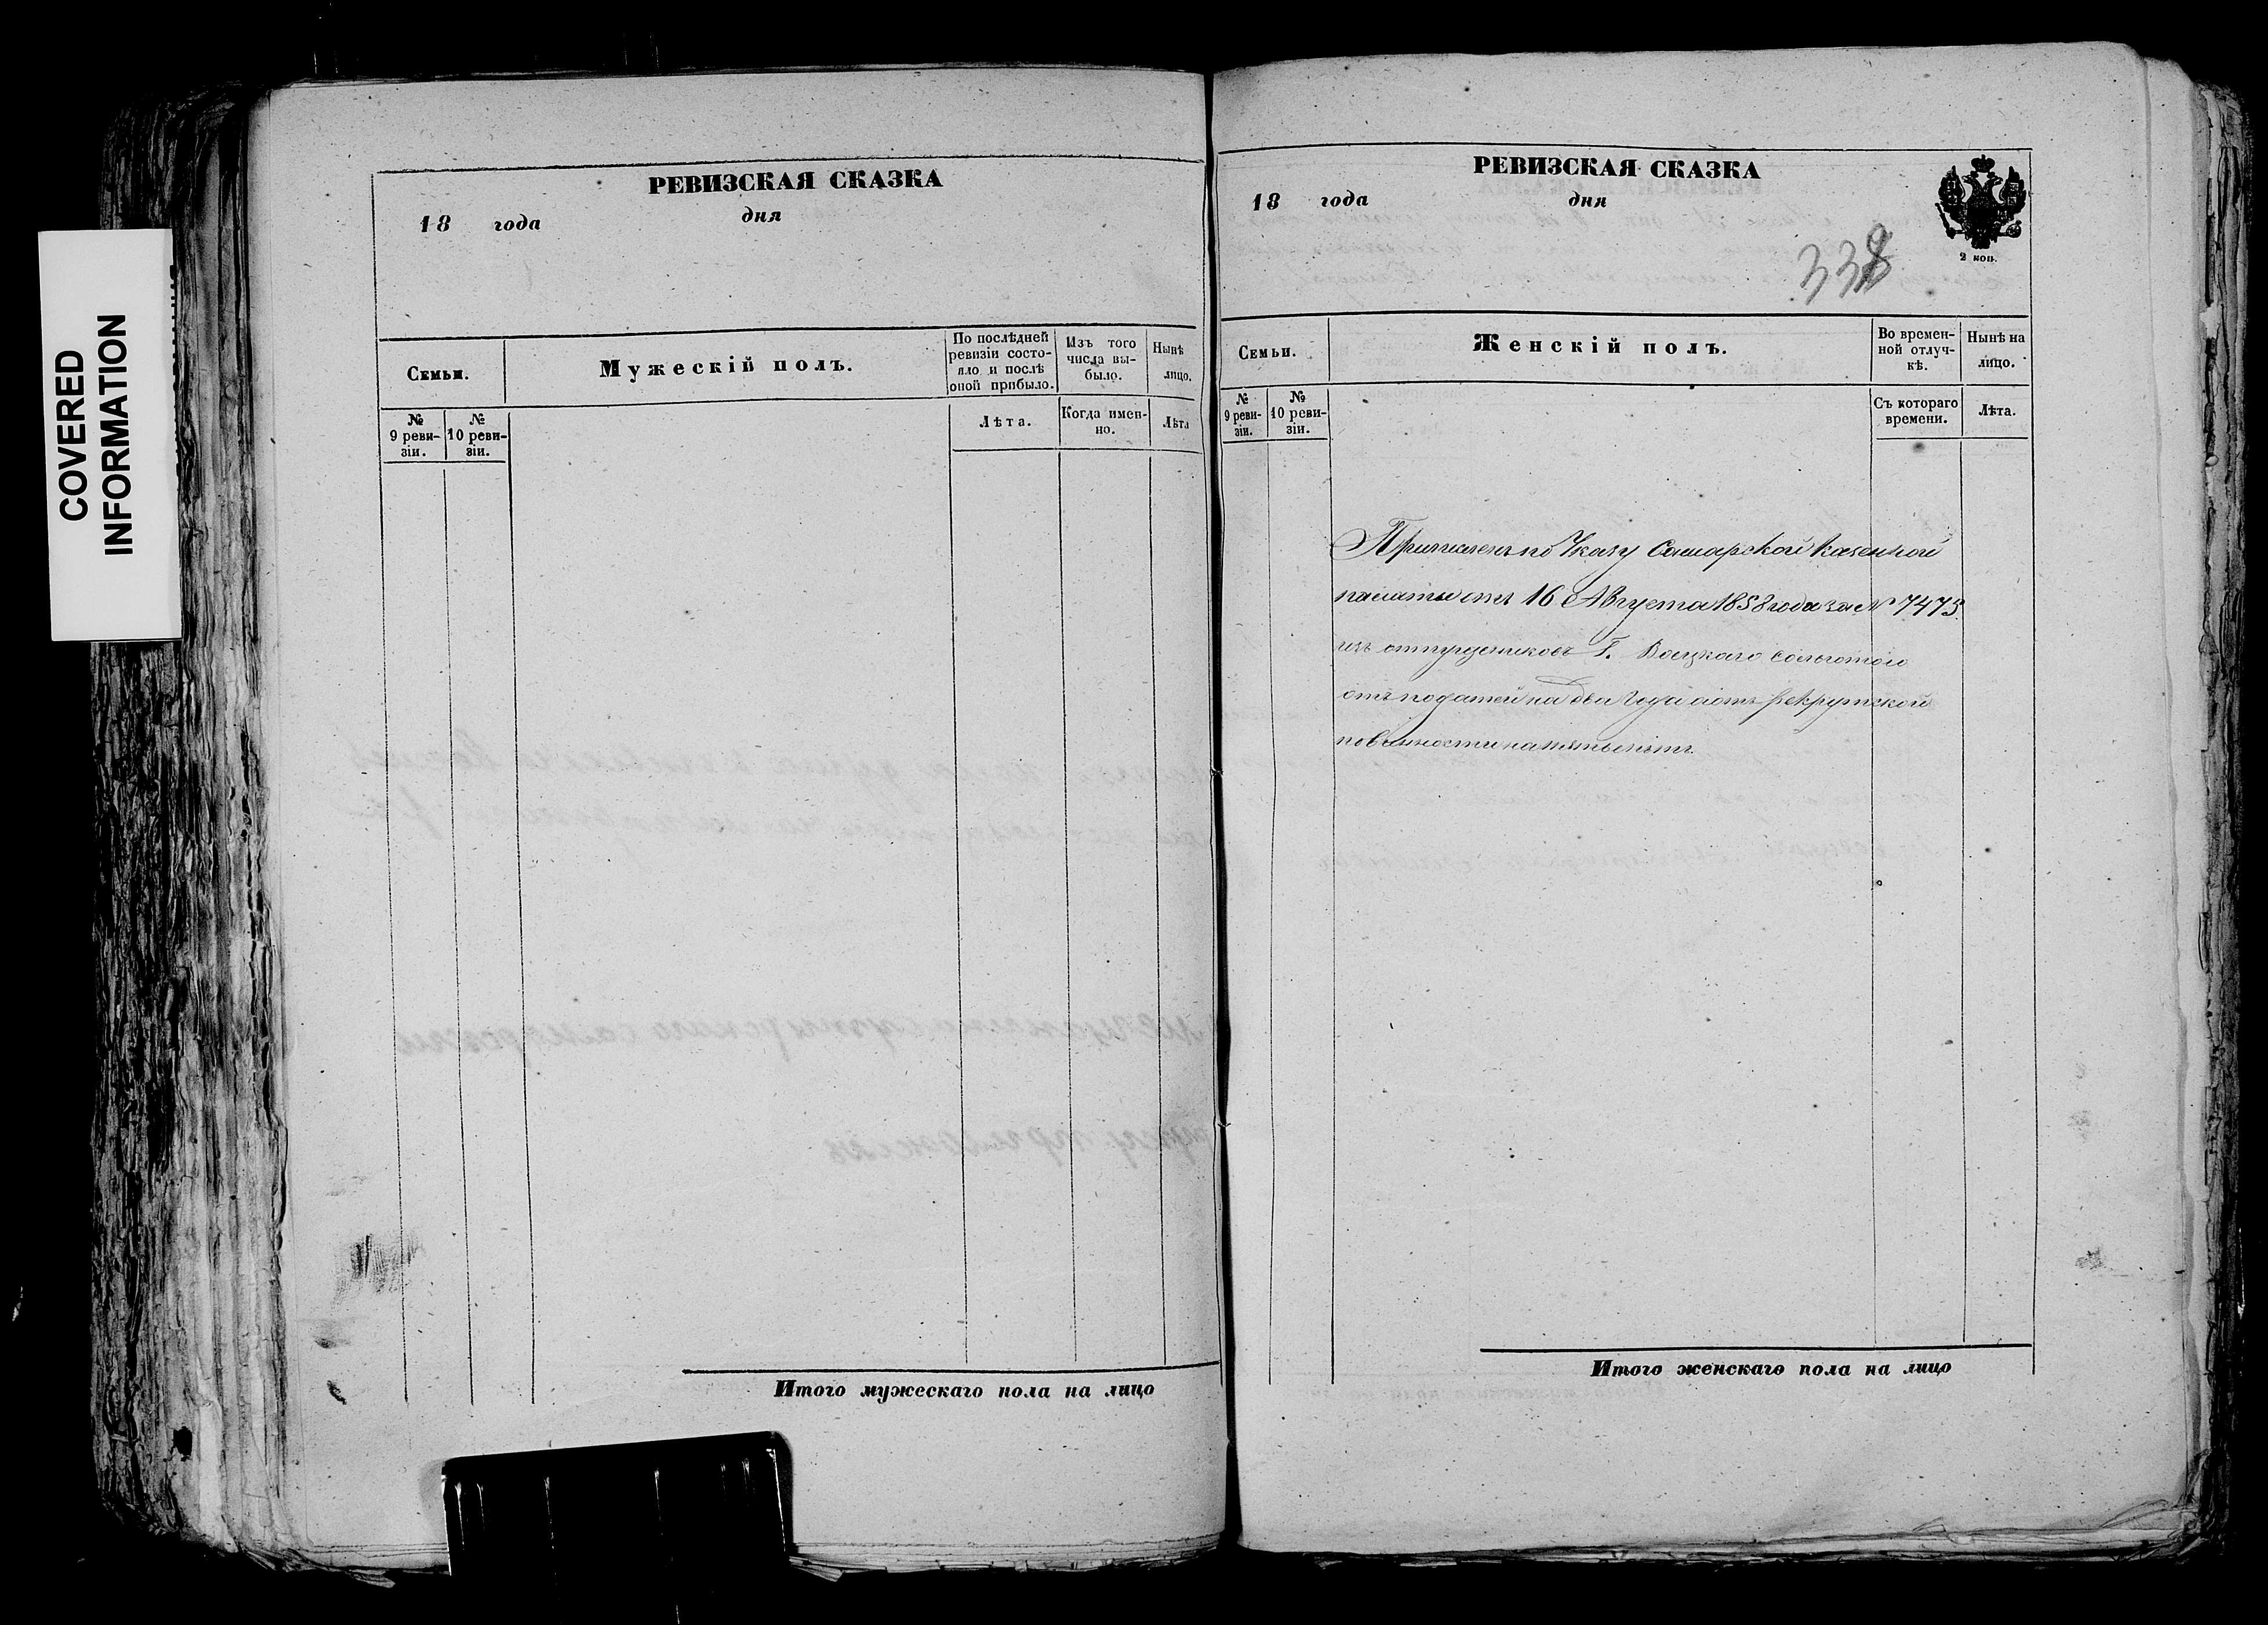 COVERED
INFORMATION
РЕВИЗСКАЯ СКАЗКА
18 года дня
Семьи.
Мужескій полъ.
По послѣдней
ревизіи состо-
яло и послѣ
оной прибыло.
Изъ того
числа вы-
было.
Нынѣ
лицо.
№
9 реви-
зіи.
№
10 реви-
зіи.
Лѣта.
Когда имен-
но.
Лѣта
Итого мужескаго пола на лицо
РЕВИЗСКАЯ СКАЗКА
18 года дня
2 коп.
338
Семьи.
Женскій полъ.
Во времен-
ной отлуч-
кѣ.
Нынѣ на
лицо.
№
9 реви-
зіи.
№
10 реви-
зіи.
Съ котораго
времени.
Лѣта.
Причисленъ по Указу Самарской Казенной
палаты отъ 16 Августа 1858 года за № 7475
изъ отпущенниковъ Г. Воецкаго сольготою
отъ податей на два года и отъ рекрутской
повинности на пять лѣтъ.
Итого женскаго пола на лицо